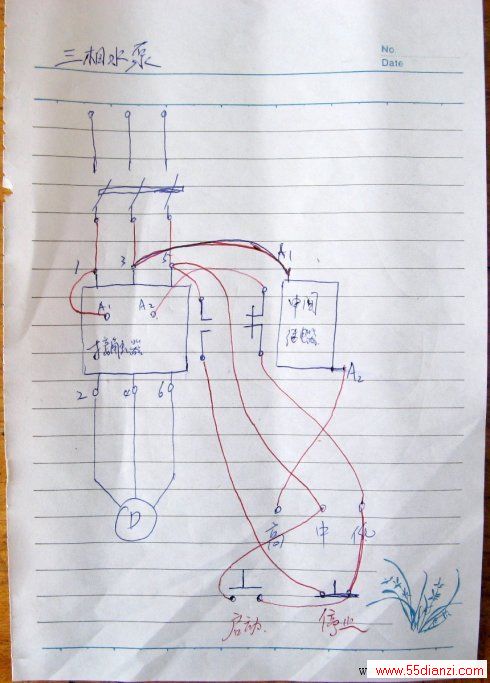 三相水泵
No
Date
1
3
5
A1
A1
A2
中间
继电器
接触器
A2
2
4
6
D
高
中
低
启动
停止
www.55dianzi.com